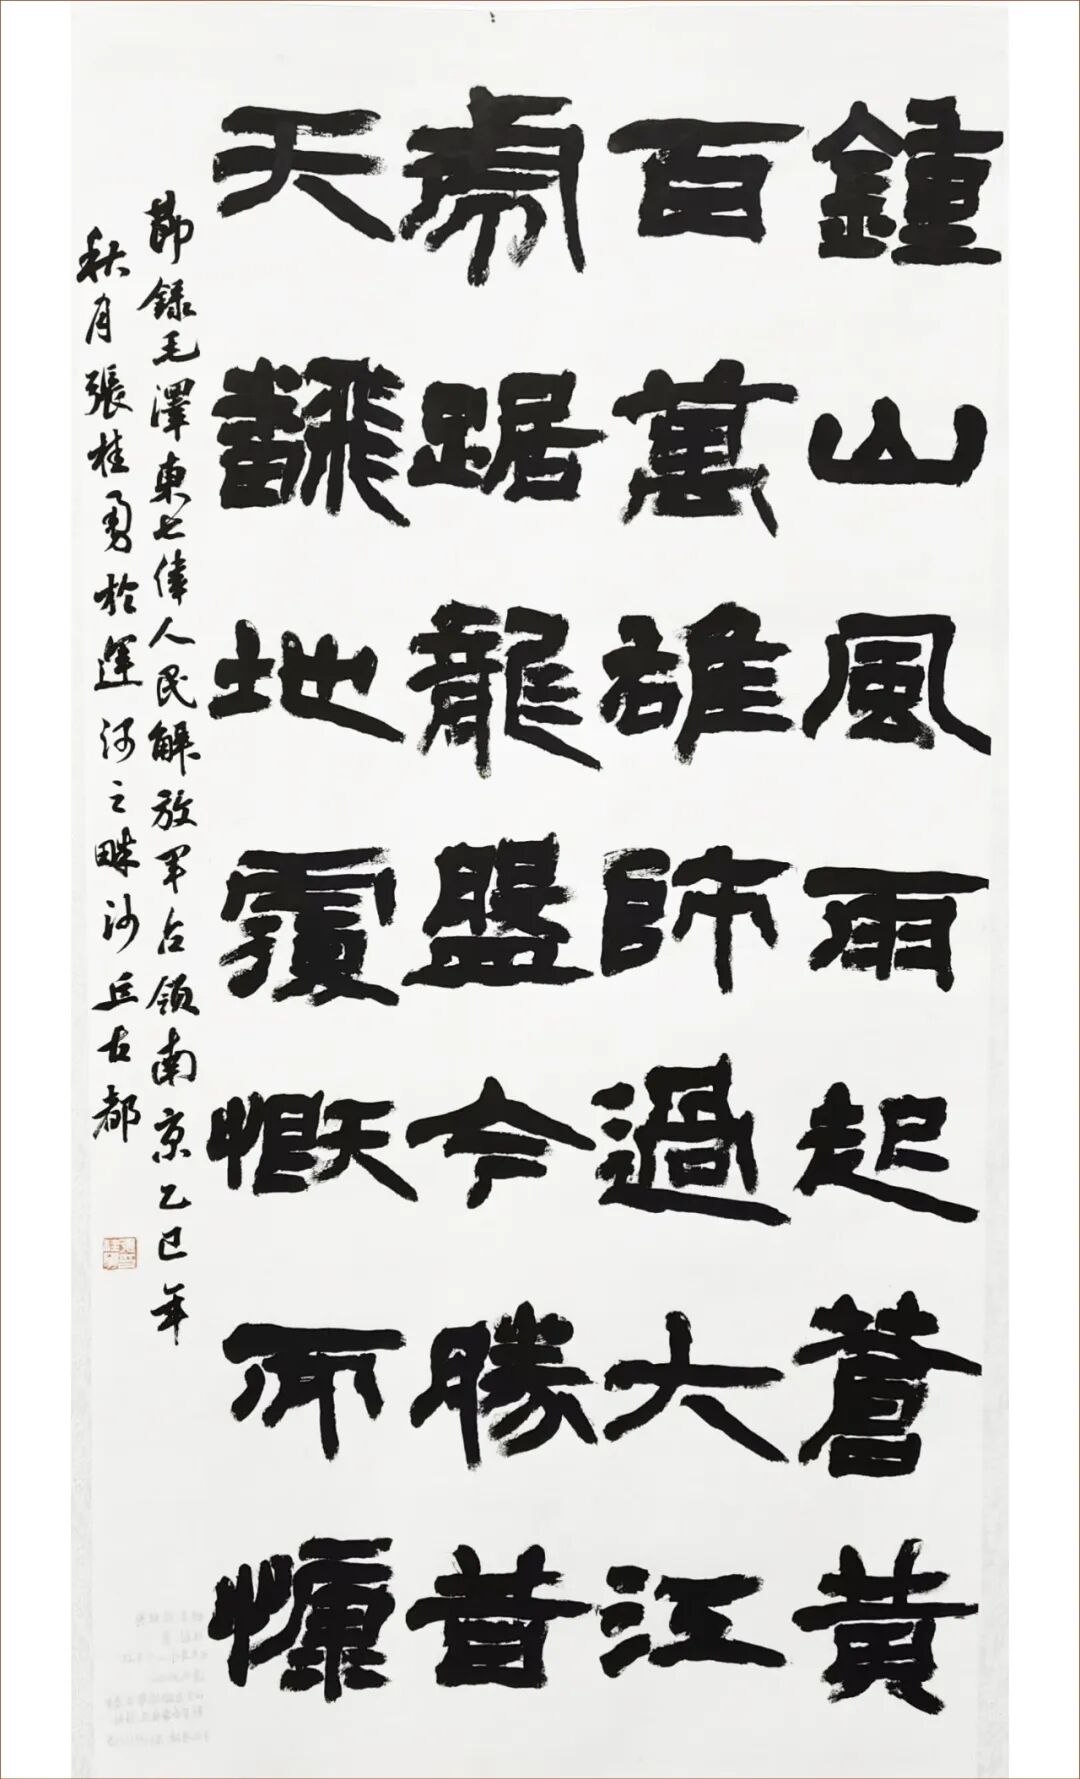 鍾山風雨起蒼黃
百萬雄師過大江
虎踞龍盤今勝昔
天翻地覆慨而慷
節錄毛澤東七律人民解放軍占領南京乙巳年
秋月張桂勇於運河之畔沙丘古都